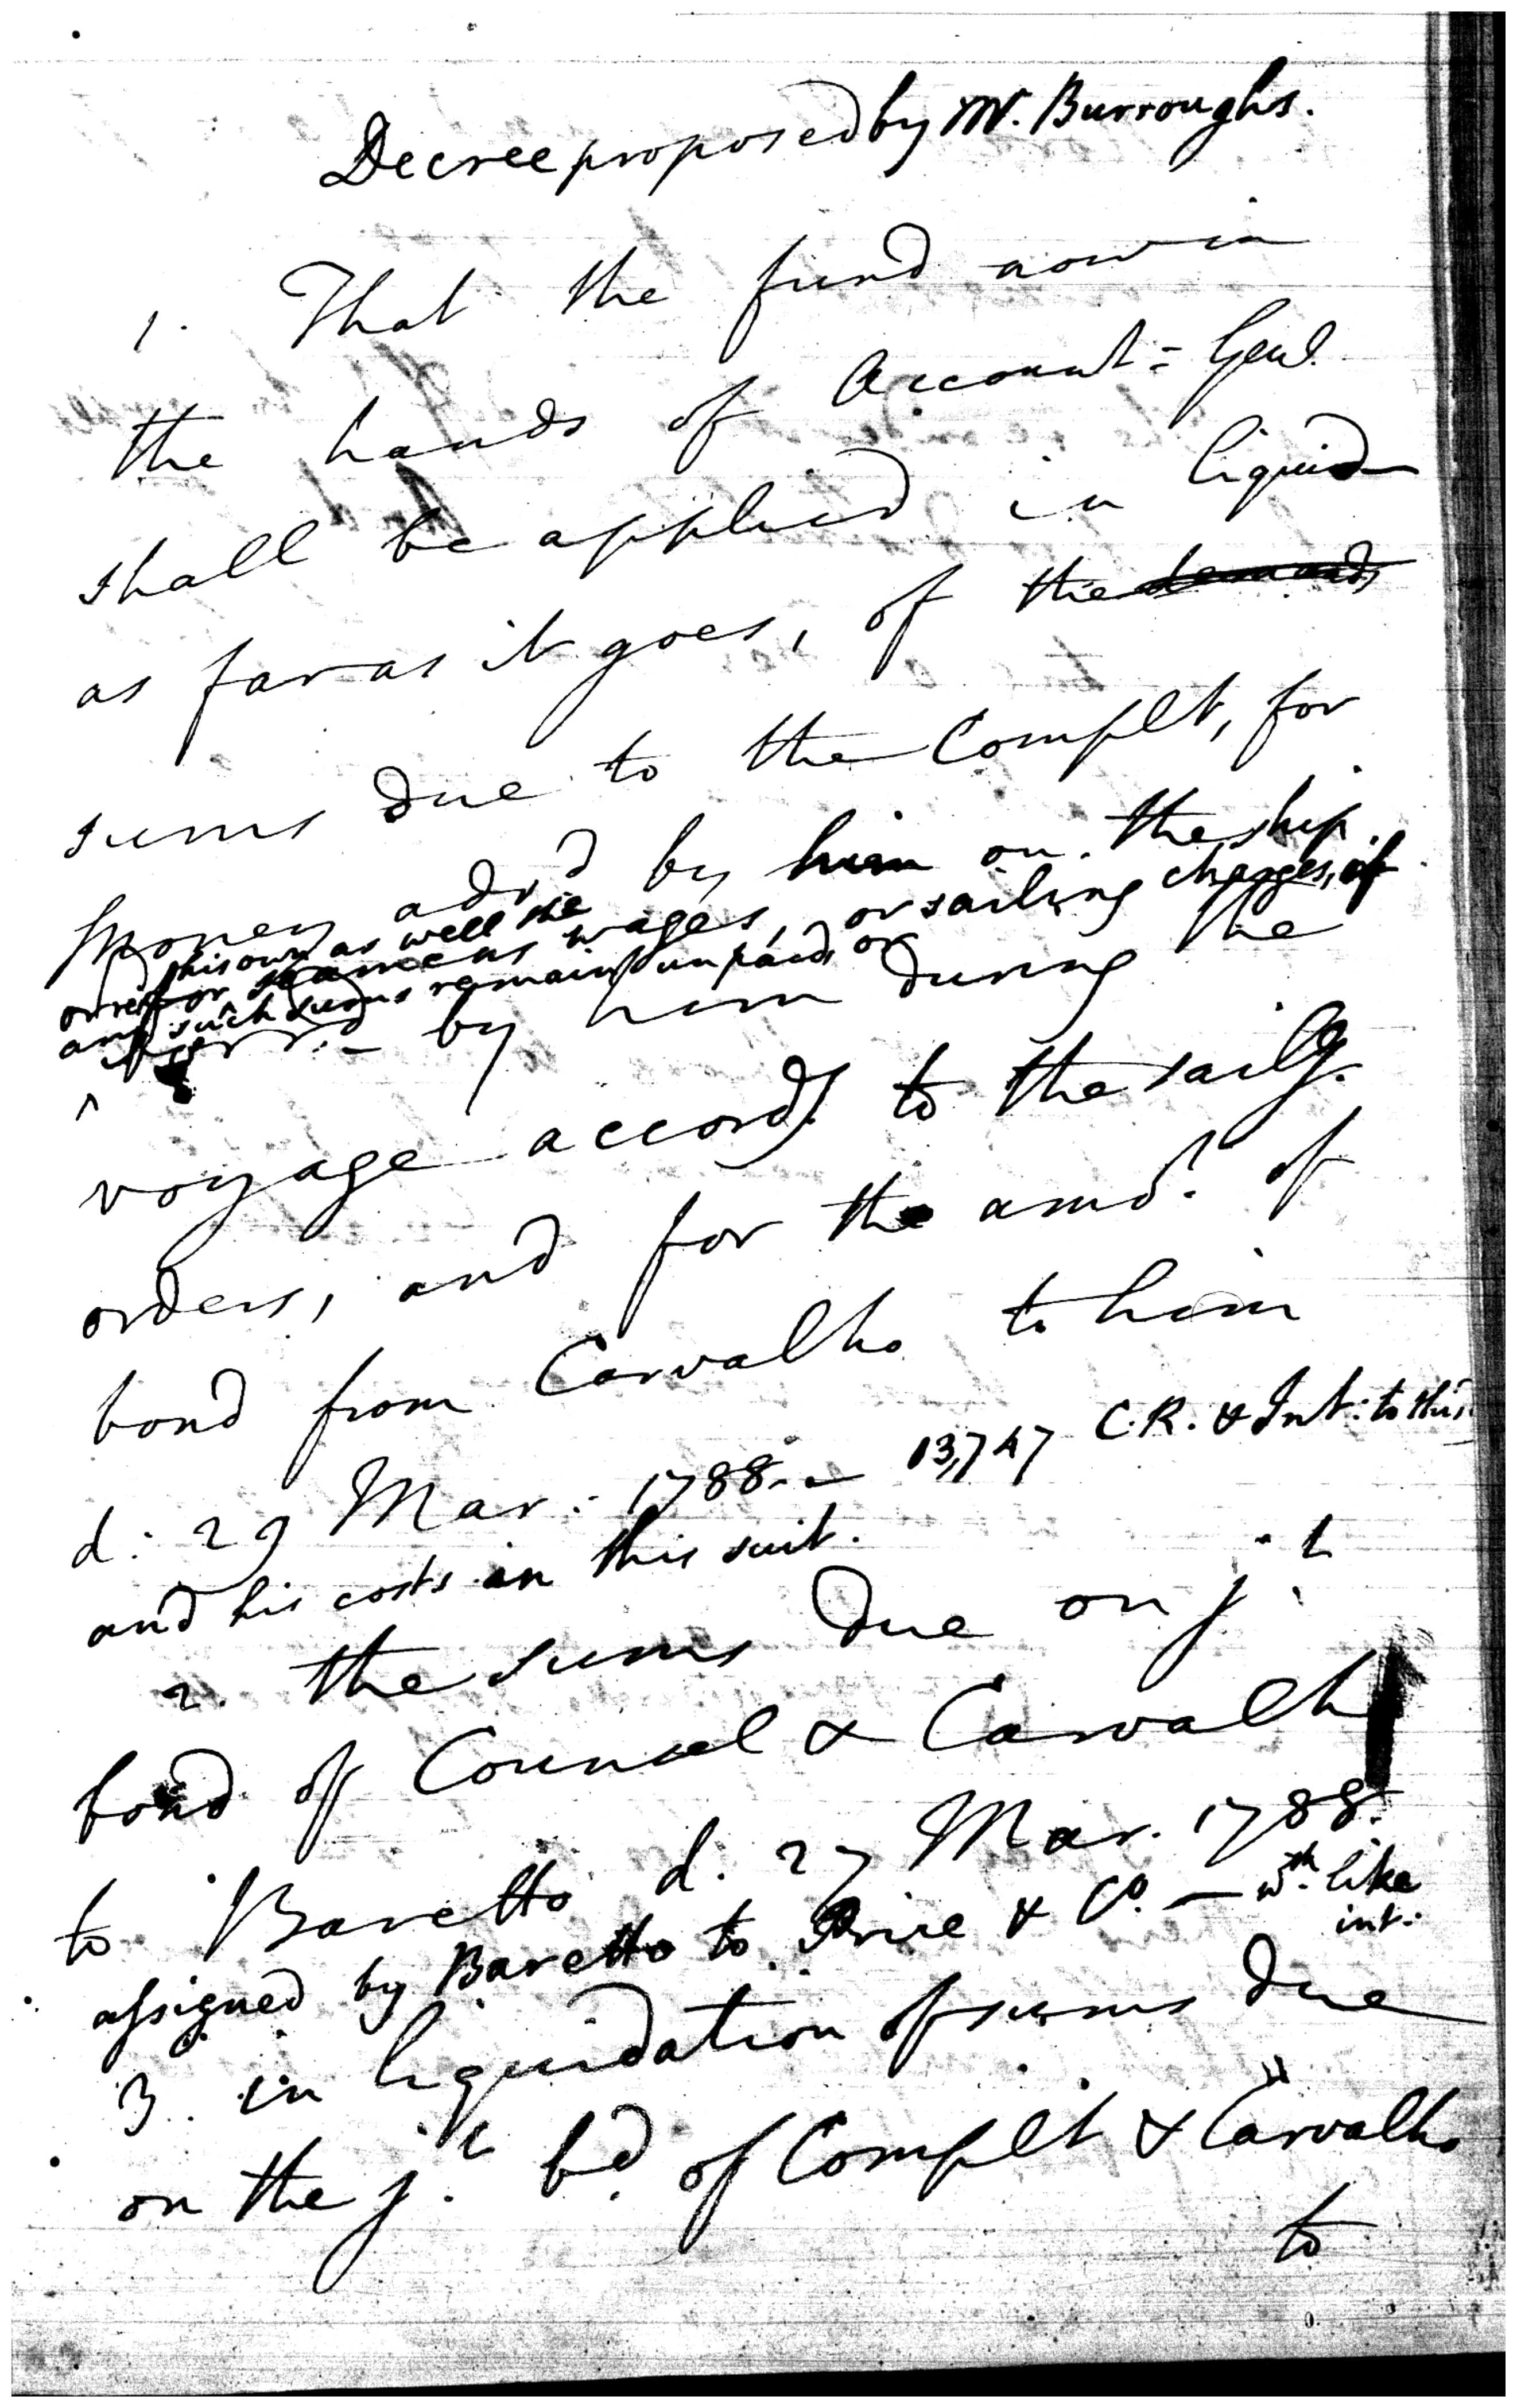 Decree proposed by Mr. Burroughs.
1. That the fund now in
the hands of Account = Genl.
shall be applied in liquid
as far as it goes, of the demands
sums due to the Complt, for
money advd by him on the ship
his own as well the
or for seamens wages, or sailing charges, if
any such sums remain unpaid or
by him during the
voyage accordg to the sailg.
orders, and for the amot. of
bond from Carvalho to him
d: 29 Mar: 1788. — 13,747 C.R. & Int: to this
and his costs in this suit.
2. the sums due on jt
bond of Counsel & Carvalh
to Baretto d. 27 Mar. 1788.
assigned by Baretto to Price & Co. — wth. like
int:
3. in liquidation of sums due
on the jt. bd. of Complt & Carvalho
to